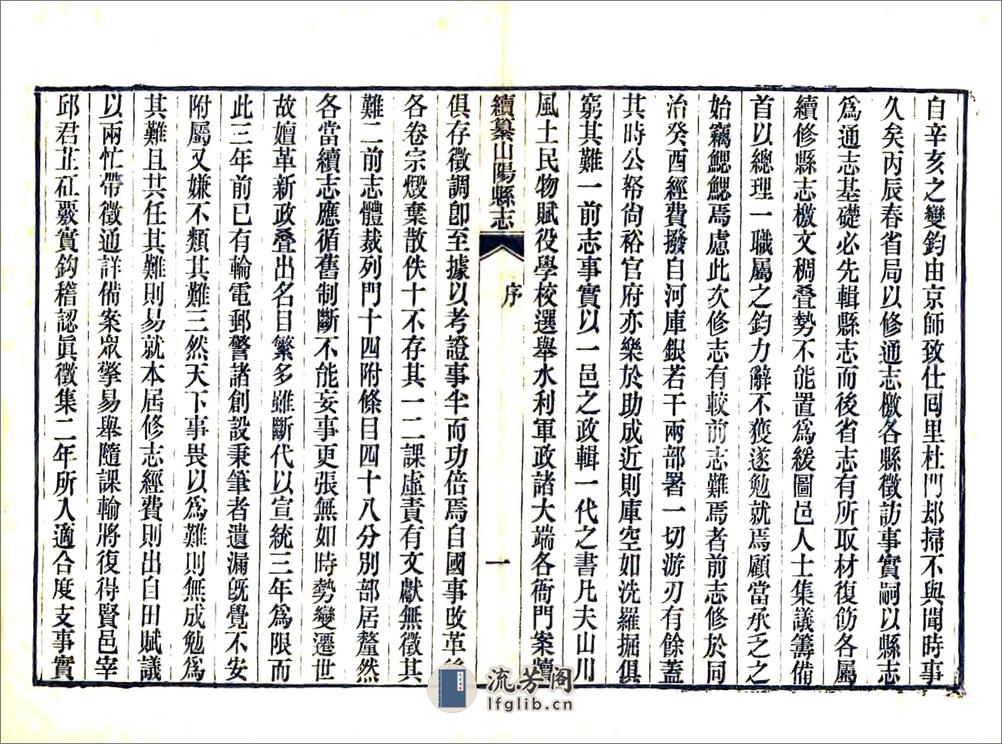 自辛亥之變鈞由京師致仕囘里杜門却掃不與聞時事
久矣丙辰春省局以修通志檄各縣徵訪事實嗣以縣志
爲通志基礎必先輯縣志而後省志有所取材復飭各屬
續修縣志檄文稠叠勢不能置爲緩圖邑人士集議籌備
首以總理一職屬之鈞力辭不獲遂勉就焉顧當承乏之
始竊鰓鰓焉慮此次修志有較前志難焉者前志修於同
治癸酉經費撥自河庫銀若干兩部署一切游刃有餘蓋
其時公帑尙裕官府亦樂於助成近則庫空如洗羅掘俱
窮其難一前志事實以一邑之政輯一代之書凡夫山川
風土民物賦役學校選舉水利軍政諸大端各衙門案牘
續纂山陽縣志
序
一
俱存徵調卽至據以考證事半而功倍焉自國事改革後
各卷宗燬棄散佚十不存其一二課虛責有文獻無徵其
難二前志體裁列門十四附條目四十八分別部居釐然
各當續志應循舊制斷不能妄事更張無如時勢變遷世
故嬗革新政叠出名目繁多雖斷代以宣統三年爲限而
此三年前已有輪電郵警諸創設秉筆者遺漏旣覺不安
附屬又嫌不類其難三然天下事畏以爲難則無成勉爲
其難且共任其難則易就本屆修志經費則出自田賦議
以兩忙帶徵通詳備案眾擎易舉隨課輸將復得賢邑宰
邱君芷䂺覈實鈎稽認眞徵集二年所入適合度支事實
流芳阁
lfglib.cn